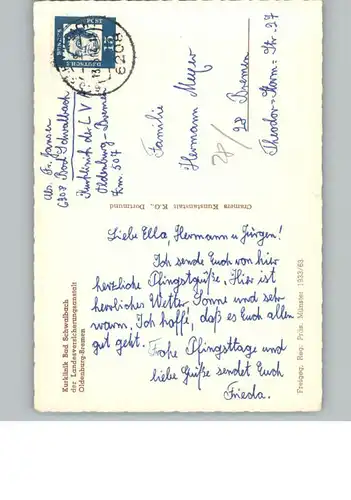 DEUTSCHE
POST
15
6208
Abs. Fr. Jansen
6208 Bad Schwalbach
Kurklinik der L V A
Oldenburg-Bremen
Zm. 507
Familie
Hermann Meyer
28 Bremen
Theodor-Storm-Str. 27
Cramers Kunstanstalt K.G., Dortmund
Liebe Ella, Hermann u. Jürgen!
Ich sende Euch von hier
herzliche Pfingstgrüße. Hier ist
herrliches Wetter, Sonne und sehr
warm. Ich hoffe, daß es Euch allen
gut geht. Frohe Pfingsttage und
liebe Grüße sendet Euch
Frieda.
Kurklinik Bad Schwalbach
der Landesversicherungsanstalt
Oldenburg-Bremen
Freigeg. Reg. Präs. Münster 1933/63